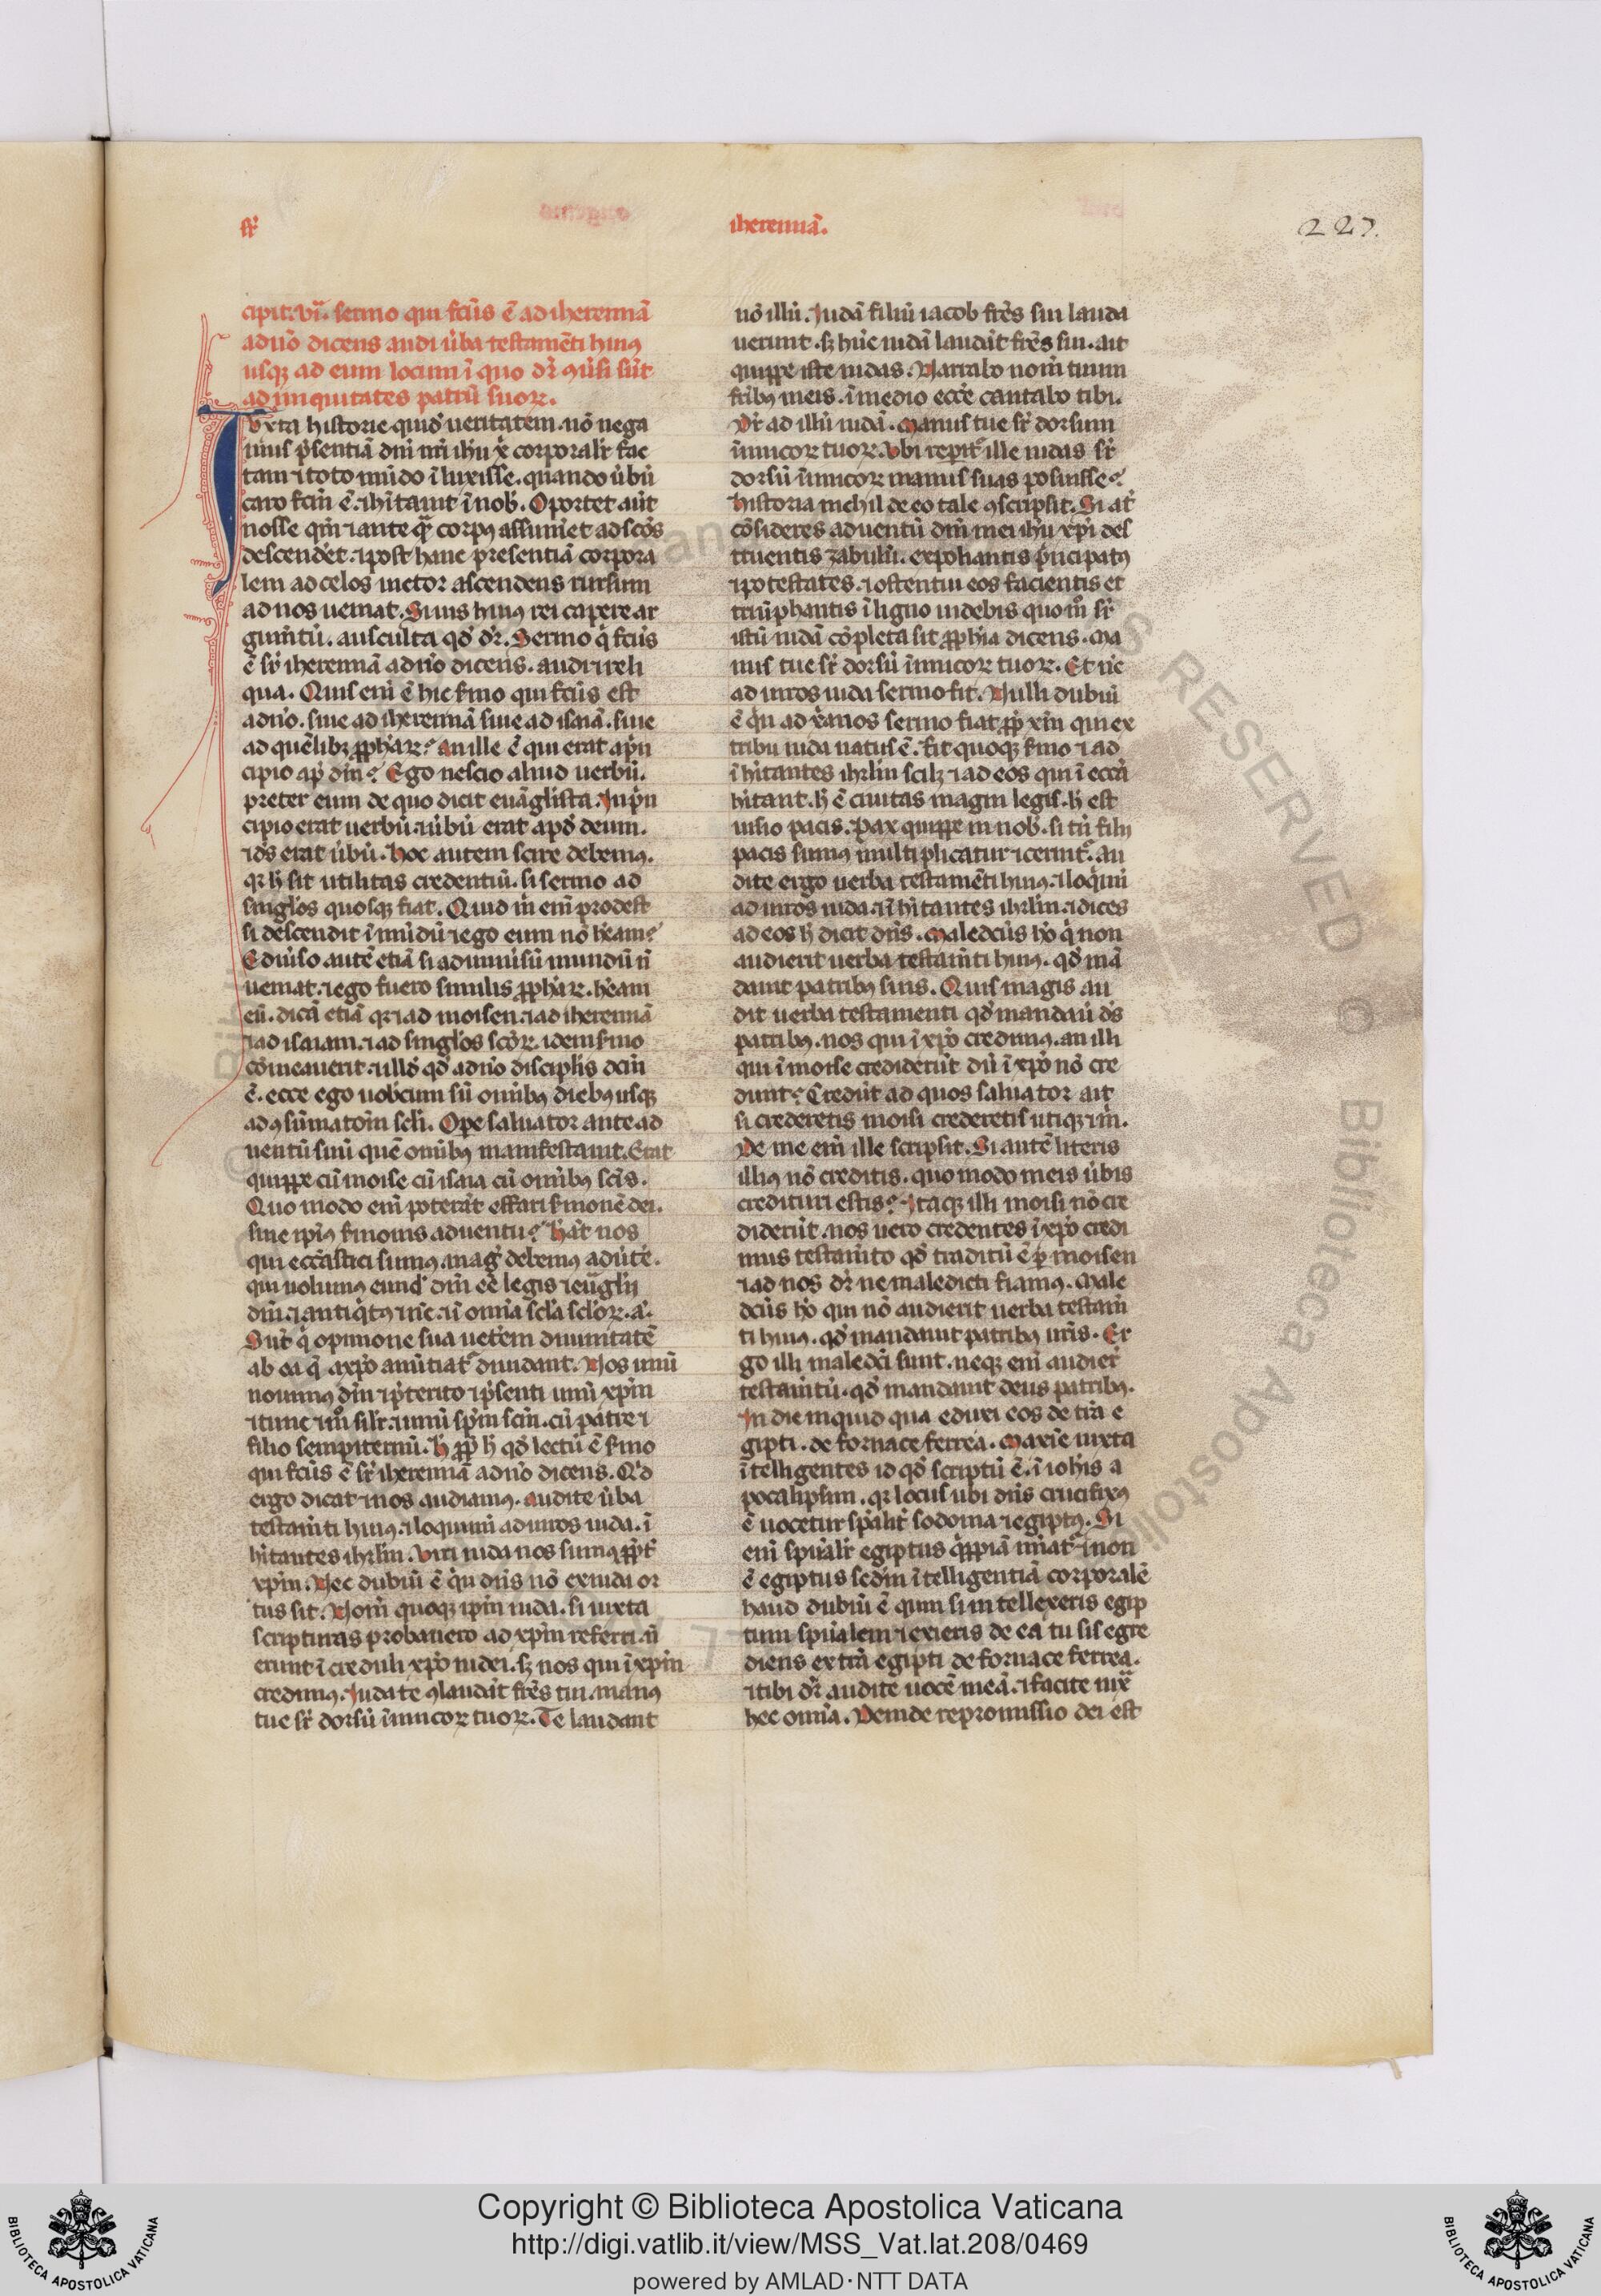 sr̄
iheremiā.
227.
cipit. vi. sermo qui fc̄us ē ad iheremiā
a dn̄o dicens audi ūba testamēti huiꝰ
usqꝫ ad eum locum ī quo dr̄ ꝯuersi sūt
ad iniquitates patrū suoꝝ.
Iuxta historie quidē ueritatem. nō nega
mus p̄sentiā dn̄i nr̄i ih̄u x̄ corporalr̄ fac
tam ⁊ toto mūdo īluxisse. quando ūbū
caro fcm̄ ē. ⁊ hītauit ī nob̄. Oportet aūt
nosse qm̄ ⁊ ante qȝ corpꝰ assumēt ad scōs
descendēt. ⁊ post hanc presentiā corpora
lem ad celos uictor ascendens rursum
ad nos ueniat. Si uis huiꝰ rei capere ar
gum̄tū. ausculta qd̄ dr̄. Sermo q̄ fc̄us
ē sr̄ iheremiā a dn̄o dicens. audi ⁊ reli
qua. Quis eni ē hic s̄mo qui fc̄us est
a dn̄o. siue ad iheremiā siue ad isaiā. siue
ad quēlibꝫ ꝓph̄aꝝ? an ille ē qui erat ap̄n
cipio ap̄ dm̄? Ego nescio aliud uerbū.
preter eum de quo dicit euāglista. In p̄n
cipio erat uerbū. ⁊ ūbū erat apd̄ deum.
⁊ ds̄ erat ūbū. Hoc autem scire debemꝰ.
qꝛ h̄ sit utilitas credentiū. si sermo ad
singlōs quosqꝫ fiat. Quid m̄ eni prodest
si descendit ī mūdū ⁊ ego eum nō hēam?
E diuiso autē etiā si ad uniuisū mundū n̄
ueniat. ⁊ ego fuero similis ꝓph̄aꝝ. hēam
eū. dicā etiā qꝛ ⁊ ad moisen. ⁊ ad iheremiā
⁊ ad isaiam. ⁊ ad singlōs scōꝝ. idem s̄mo
cōmeauerit. ⁊ illd̄ qd̄ a dn̄o disciplīs dcm̄
ē. ecce ego uobīcum sū omībꝰ diebꝰ usqꝫ
ad ꝯsūmatōm scli. Ope saluator ante ad
uentū suū quē omībꝰ manifestauit. Erat
quippe cū moise cū isaia cū omībꝰ scīs.
Quo modo eni poterāt effari s̄monē dei.
sine ipiꝰ s̄monis aduentu? H̄ āt nos
qui ecc̄astici sumꝰ. mag̃ debemꝰ adūte.
qui uolumus eund̄ dm̄ eē legis ⁊ eūglij
dm̄. ⁊ antiq̄tꝰ ⁊ nc̄. ⁊ ī omīa scl̄a scl̄oꝝ. a.
Sūt q̄ opinione sua uetrēm diuinitatē
ab ea q̄ a xp̄o anūtiat᷑ diuidant. Nos unū
nouimꝰ dm̄ ⁊ p̄terito ⁊ p̄senti unū xpm̄
⁊ tunc ⁊ m̊ silr̄. ⁊ unū spm̄ scm̄. cū patre ⁊
filio sempiternū. H̄ ꝓp̄ h̄ qd̄ lectū ē s̄mo
qui fc̄us ē sr̄ iheremiā a dn̄o dicens. Qd̄
ergo dicat ⁊ nos audiamꝰ. audite ūba
testam̄ti huiꝰ. ⁊ loquimi ad uiros iuda. ī
hītantes ihrlm̄. Viri iuda nos sumꝰ ꝓpt̄
xpm̄. Nec dubiū ē qn̄ dn̄s nō ex iuda or
tus sit. Nom̄ quoqꝫ ipm̄ iuda. si iuxta
scripturas probauero ad xpm̄ referri. n̄
erunt ī creduli xp̄o iudei. sꝫ nos qui ī xpm̄
credimꝰ. Iuda te ꝯlaudāt frēs tui. manꝰ
tue sr̄ dorsū īimicoꝝ tuoꝝ. Te laudant
nō illū. Iudā filiū iacob frēs sui lauda
uerunt. sꝫ hūc iudā laudāt frēs sui. ait
quippe iste iudas. Narrabo nom̄ tuum
frībꝰ meis. ī medio eccē cantabo tibi.
Dr̄ ad illū iudā. Manus tue sr̄ dorsum
īimicoꝝ tuoꝝ. Vbi repit᷑ ille iudas sr̄
dorsū īimicoꝝ manus suas posuisse?
Historia nichil de eo tale ꝯscripsit. Si āt
cōsideres aduentū dm̄ mei ih̄u xp̄i des
truentis zabulū. expoliantis p̄ncipatꝰ
⁊ potestates. ⁊ ostentui eos facientis et
triūphantis ī ligno uidebis quom̊ sr̄
istū iudā cōpleta sit ꝓph̄ia dicens. Ma
nus tue sr̄ dorsū īimicoꝝ tuoꝝ. Et nc̄
ad uiros iuda sermo fit. Nulli dubiū
ē qn̄ ad x̄anos sermo fiat ꝓp̄ xpm̄ qui ex
tribu iuda natus ē. fit quoqꝫ s̄mo ⁊ ad
īhītantes ihrlm̄ scilꝫ ⁊ ad eos qui ī eccā
hītant. h̄ ē ciuitas magni legis. h̄ est
uisio pacis. Pax quippe in nob̄. si tn̄ filij
pacis sumꝰ multiplicatur ⁊ cernit᷑. au
dite ergo uerba testamēti huiꝰ. ⁊ loq̄mi
ad uiros iuda. ⁊ īhītantes ihrlm̄. ⁊ dices
ad eos h̄ dicit dn̄s. Maledcūs hō q̄ non
audierit uerba testam̄ti huiꝰ. qd̄ mā
daui patribꝰ suis. Quis magis au
dit uerba testamenti qd̄ mandaū ds̄
patribꝰ. nos qui ī xp̄o credimꝰ. an illi
qui ī moise crediderūt dū ī xp̄o nō cre
dunt? Credūt ad quos saluator ait
si crederetis moisi crederetis utiqꝫ ⁊ m̄.
De me eni ille scripsit. Si autē literis
illiꝰ nō creditis. quo modo meis ūbis
credituri estis? Itaqꝫ illi moisi nō cre
diderūt. nos uero credentes ī xp̄o credi
mus testam̄to qd̄ traditū ē ꝑ moisen
⁊ ad nos dr̄ ne maledicti fiamꝰ. Male
dcūs hō qui nō audierit uerba testam̄
ti huiꝰ. qd̄ mandaui patribꝰ ur̄is. Er
go illi maledcī sunt. neqꝫ eni audier̄
testam̄tū. qd̄ mandauit deus patribꝰ.
In die inquid qua eduxi eos de tr̄a e
gipti. de fornace ferrea. Maxīe iuxta
ītelligentes id qd̄ scriptū ē. ī iohīs a
pocalipsim. qꝛ locus ubi dn̄s crucifixꝰ
ē uocetur spāliṫ sodoma ⁊ egiptꝰ. Si
eni spūalr̄ egiptus q̄ppiā uniat᷑ ⁊ non
ē egiptus scdm̄ ītelligentiā corporalē
haud dubiū ē quin si intellexeris egip
tum spūalem ⁊ exieris de ea tu sis egre
diens ex tr̄a egipti de fornace ferrea.
⁊ tibi dr̄ audite uocē meā. ⁊ facite iux̄
hec omīa. Deinde repromissio dei est
Copyright © Biblioteca Apostolica Vaticana
http://digi.vatlib.it/view/MSS_Vat.lat.208/0469
powered by AMLAD·NTT DATA
BIBLIOTECA APOSTOLICA VATICANA
BIBLIOTECA APOSTOLICA VATICANA